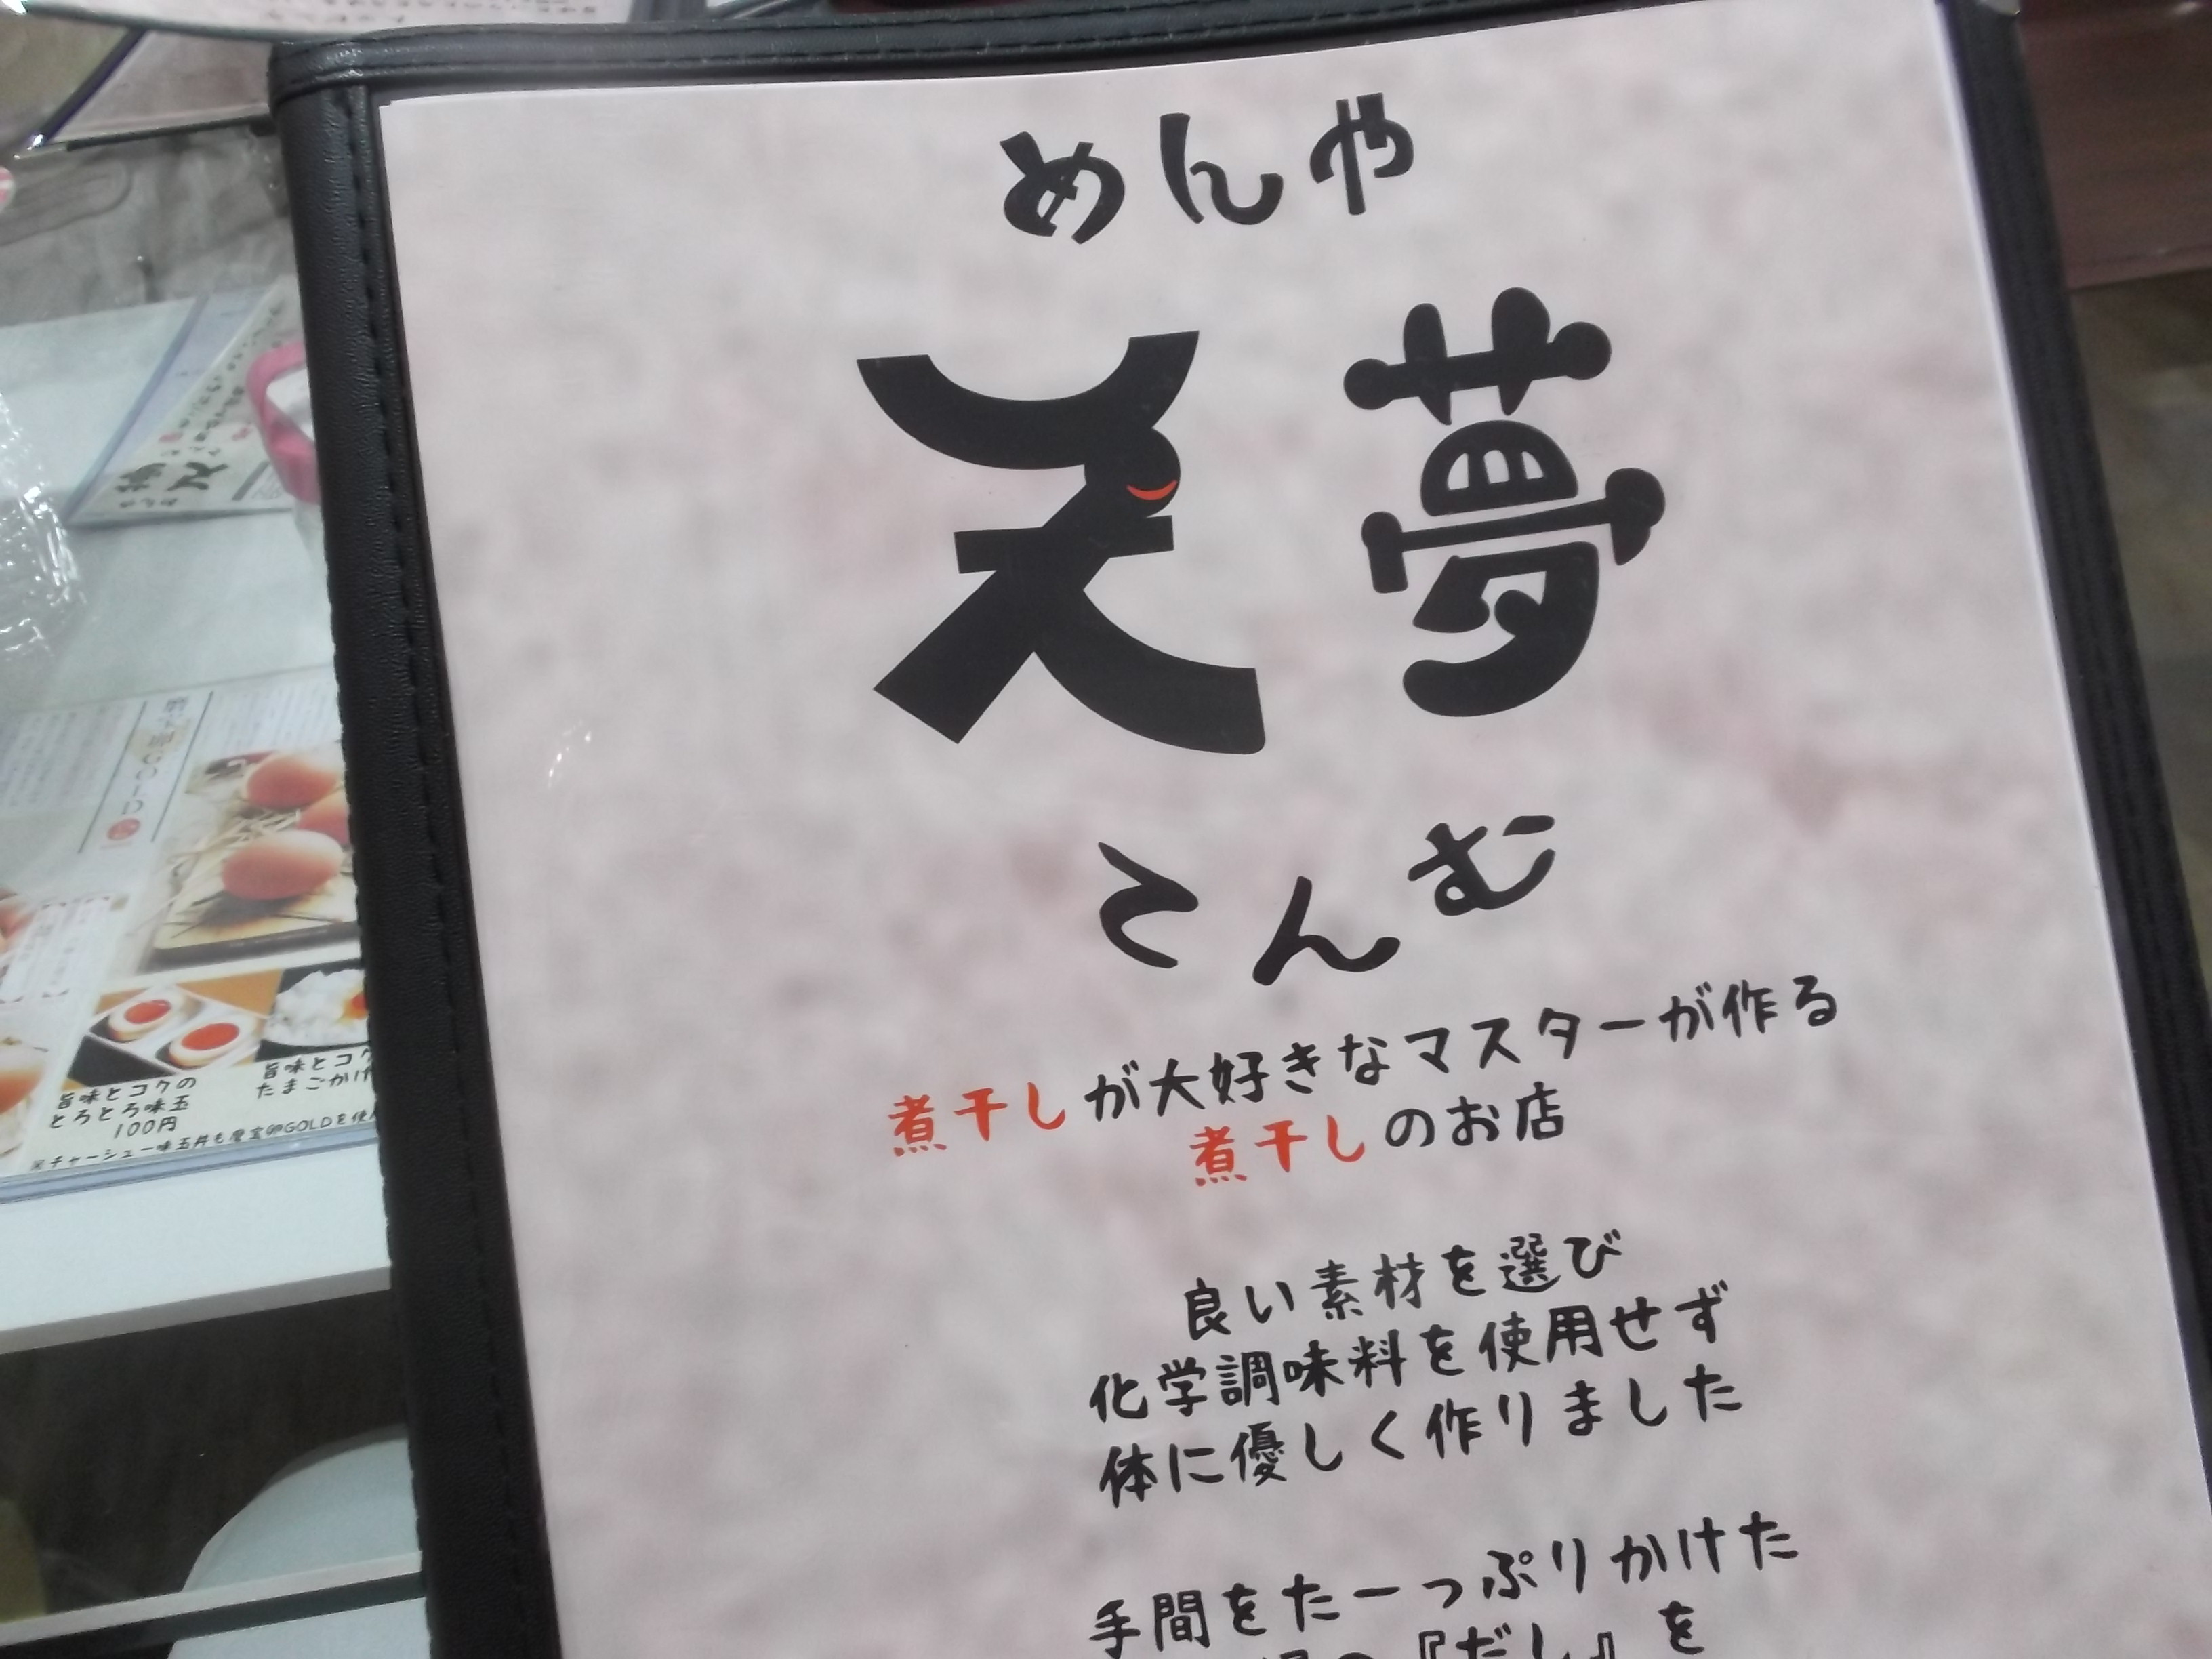 めんや
天夢
てんむ
煮干しが大好きなマスターが作る
煮干しのお店
良い素材を選び
化学調味料を使用せず
体に優しく作りました
手間をたーっぷりかけた
『だし』を
旨味とコクの
とろとろ味玉
100円
旨味とコク
たまごかけ
※チャーシュー味玉丼も魔宝卵GOLDを使用